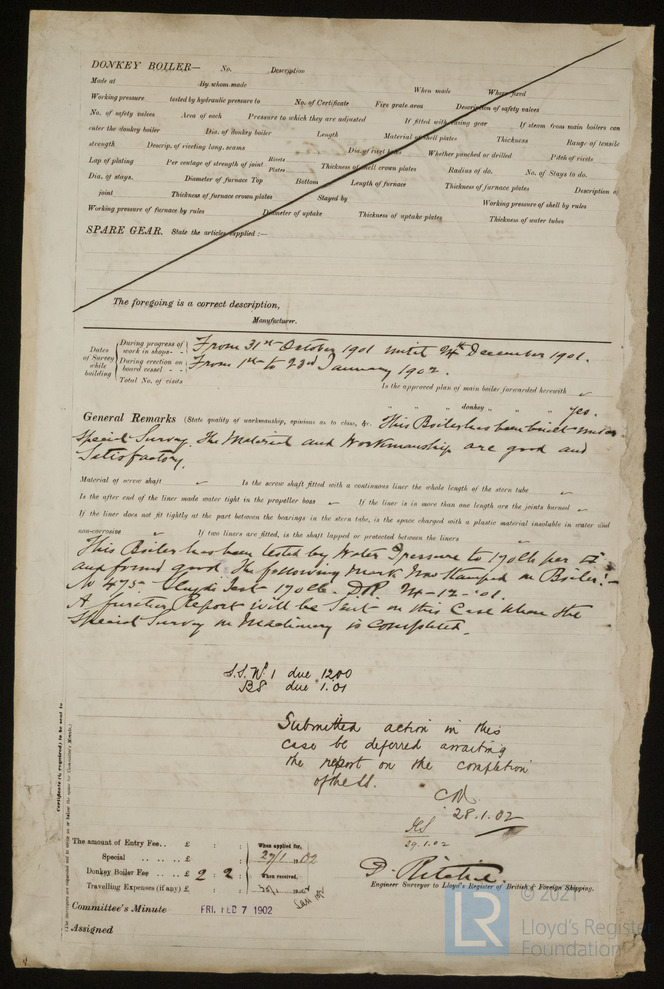 DONKEY BOILER— No. Description
Made at By whom made When made Where fixed
Working pressure tested by hydraulic pressure to No. of Certificate Fire grate area Description of safety valves
No. of safety valves Area of each Pressure to which they are adjusted If fitted with easing gear If steam from main boilers can
enter the donkey boiler Dia. of donkey boiler Length Material of shell plates Thickness Range of tensile
strength Descrip. of riveting long. seams Dia. of rivet holes Whether punched or drilled Pitch of rivets
Lap of plating Per centage of strength of joint Rivets Plates Thickness of shell crown plates Radius of do. No. of Stays to do.
Dia. of stays. Diameter of furnace Top Bottom Length of furnace Thickness of furnace plates Description of
joint Thickness of furnace crown plates Stayed by Working pressure of shell by rules
Working pressure of furnace by rules Diameter of uptake Thickness of uptake plates Thickness of water tubes
SPARE GEAR. State the articles supplied :—
The foregoing is a correct description,
Manufacturer.
Dates of Survey while building
During progress of work in shops- - From 31st October 1901 until 24th December 1901.
During erection on board vessel - - From 1st to 23rd January 1902.
Total No. of visits
Is the approved plan of main boiler forwarded herewith ✓
" " " donkey " " " yes.
General Remarks (State quality of workmanship, opinions as to class, &c. This Boiler has been built under
Special Survey. The Material and Workmanship are good and
Satisfactory.
Material of screw shaft ✓ Is the screw shaft fitted with a continuous liner the whole length of the stern tube ✓
Is the after end of the liner made water tight in the propeller boss ✓ If the liner is in more than one length are the joints burned ✓
If the liner does not fit tightly at the part between the bearings in the stern tube, is the space charged with a plastic material insoluble in water and
non-corrosive If two liners are fitted, is the shaft lapped or protected between the liners
This Boiler has been tested by Water Pressure to 170lb per □"
and found good. The following Mark now Stamped on Boiler:-
No 475 Lloyds Test 170lb. DR 24-12-01.
A further Report will be Sent on this Case when the
Special Survey on Machinery is Completed.
S.S. No. 1 due 12.00
BS due 1.01
Submitted action in this
case be deferred awaiting
the report on the completion
of the SS.
28.1.02
29.1.02
The amount of Entry Fee.. £ : : When applied for,
Special .. .. .. £ : : 27/1 1902
Donkey Boiler Fee .. .. £ 2 : 2 : When received,
Travelling Expenses (if any) £ : :
D. Ritchie.
Engineer Surveyor to Lloyd's Register of British & Foreign Shipping.
Committee's Minute FRI. FEB 7 1902
Assigned
© 2021
LR Lloyd's Register
Foundation